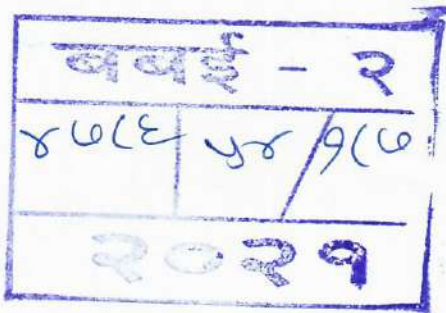 बबई - २
४७८६ ५४/१८७
२०२१